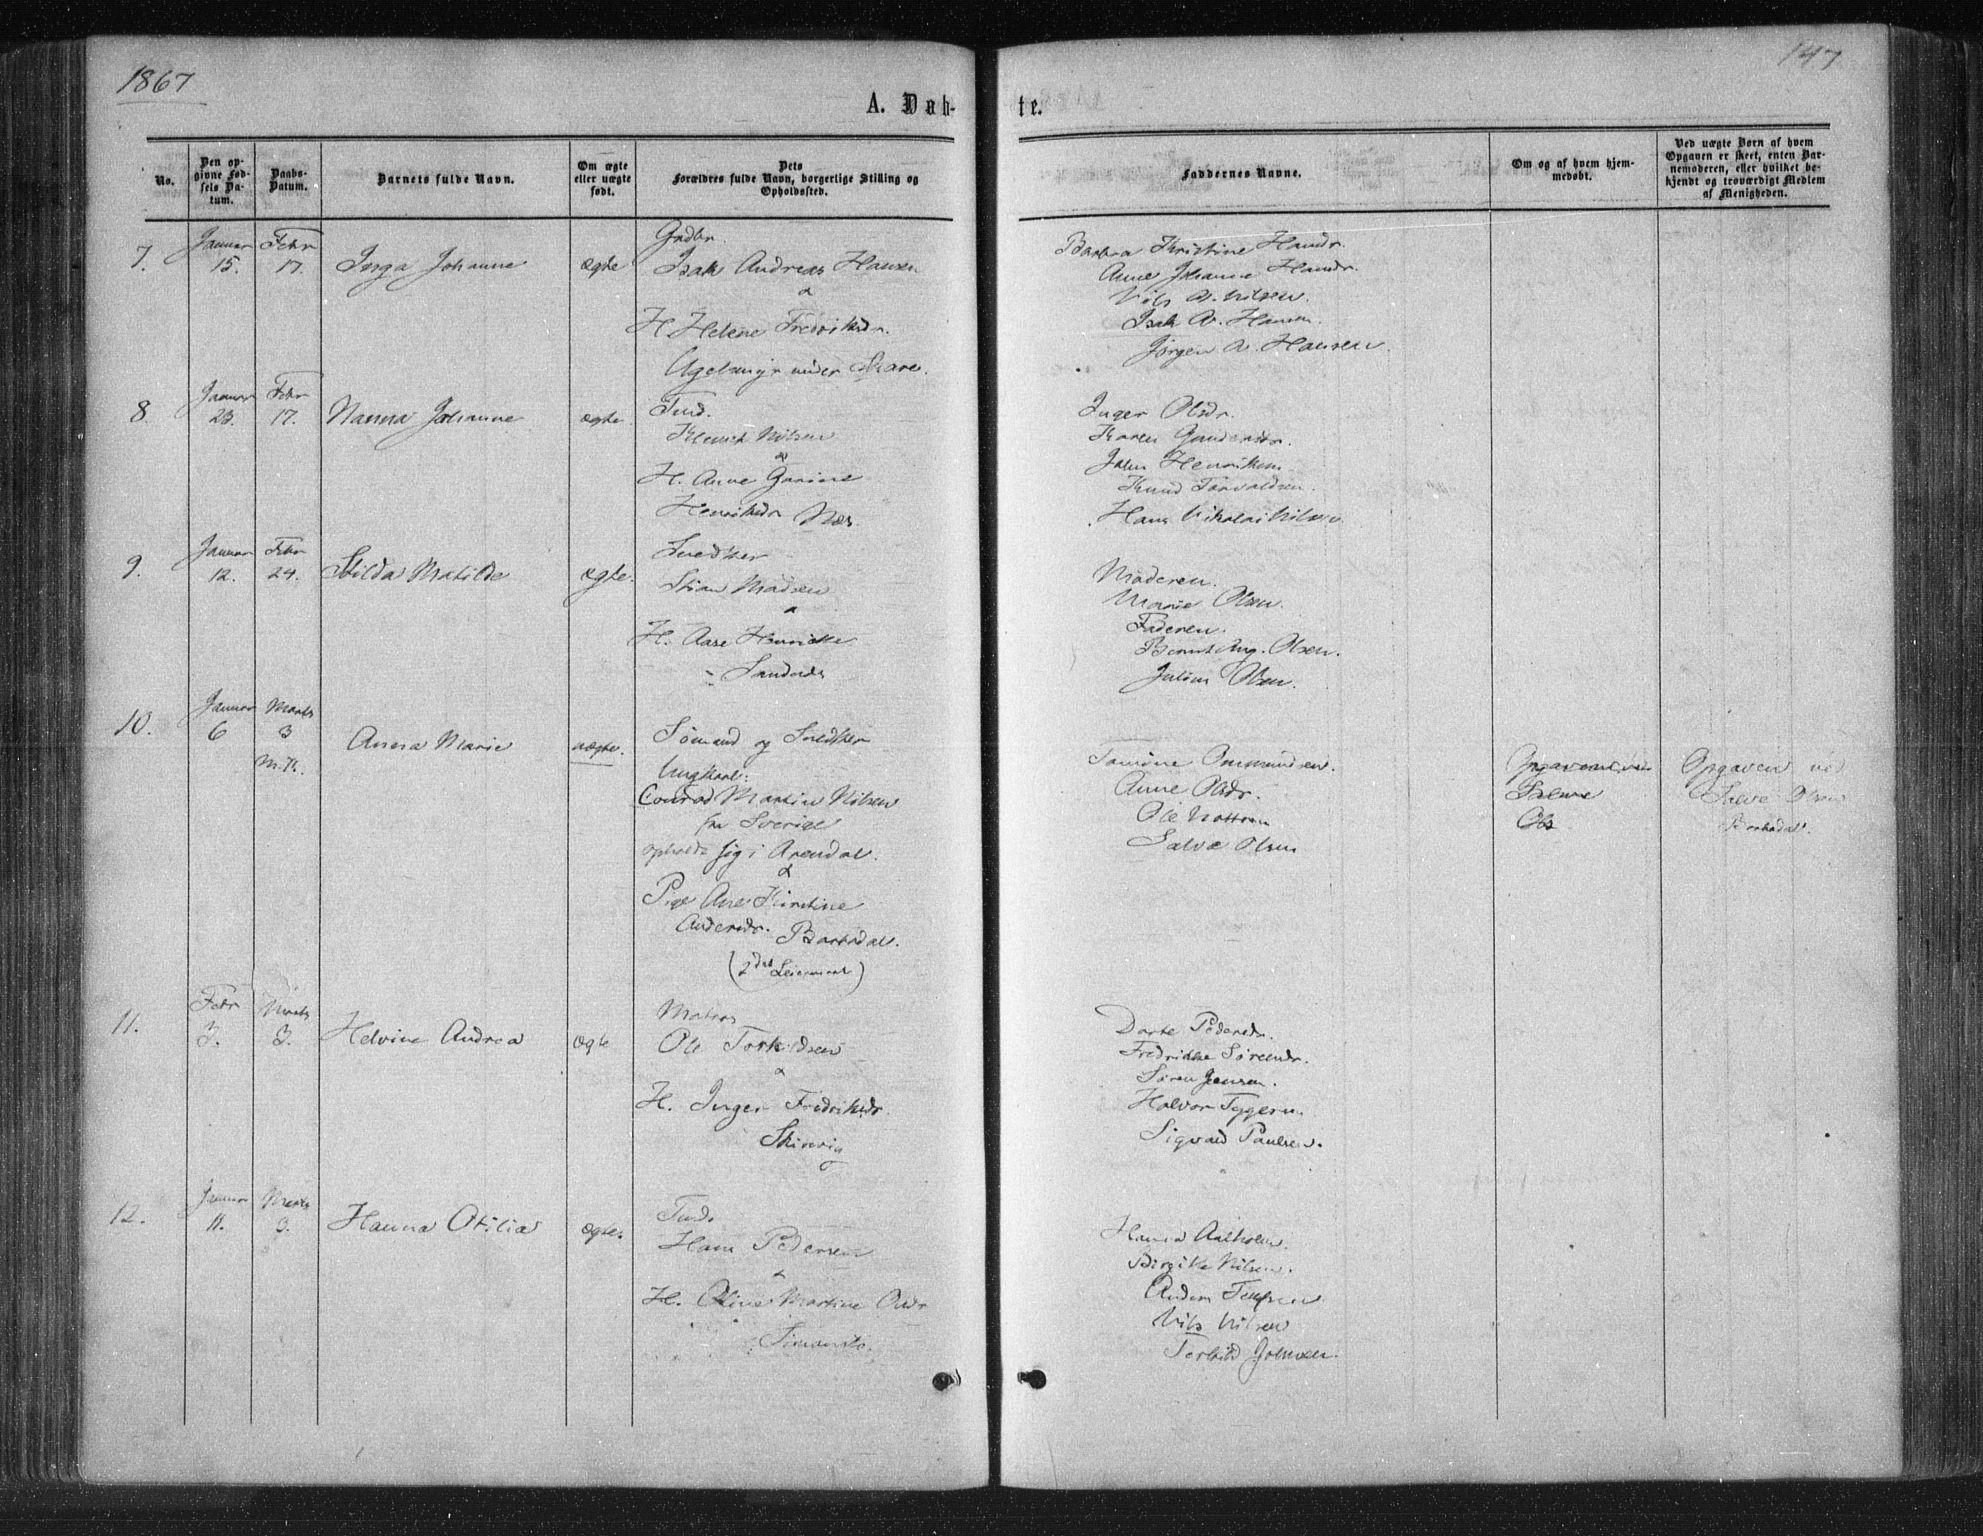 1867
147
A. Døb-
te.
No.
Den op-
givne Fød-
sels Da-
tum.
Daabs-
Datum.
Barnets fulde Navn.
Om ægte
eller uægte
født.
Dets
Forældres fulde Navn, borgerlige Stilling og
Opholdssted.
Faddernes Navne.
Om og af hvem hjem-
medøbt.
Ved uægte Børn af hvem
Opgaven er skeet, enten Bar-
nemoderen, eller hvilket be-
kjendt og troværdigt Medlem
af Menigheden.
7.
Januar
15.
Febr
17.
Inga Johanne
ægte
Grdbr.
Isak Andreas Hansen
&
H. Helene Fredriksdr.
under
Barbra Kristine Hansdr.
Anne Johanne Hansdr.
Nils A. Nilsen.
Isak A. Hansen.
Jørgen A. Hansen.
8.
Januar
23.
Febr
17.
Nanna Johanne
ægte
Nilsen
&
H. Anne Gurine
Henriksdr Næs.
Inger Olsdr.
Karen Gundersdr.
John Henriksen
Knud Torvaldsen.
Hans Nikolai Nilsen
9.
Januar
12.
Febr
24.
Hilda Matilde
ægte.
Snedker
Stian Madsen
&
H. Aase Henrikke
Moderen.
Marie Olsen.
Faderen.
Bernt Aug. Olsen.
Julius Olsen.
10.
Januar
6
Marts
3
M.K.
Anna Marie
uægte.
Sømand og Snedker
Ungkarl:
Conrad Martin Nilsen
fra Sverige
opholdt sig i Arendal.
&
Pige Ane Kirstine
Andersdr. Barbodal.
(2det Leiermaal)
Tomine Ommundsen.
Anne Olsdr.
Ole
Salve Olsen
Opgaven ved
Salve
Ols
Opgaven ved
Salve Olsen
Barbodal.
11.
Febr
3.
Marts
3.
Helvine Andrea
ægte
Matros
Ole Torkildsen
&
H. Inger Fredriksdr.
Skinvig
Dorte Pedersdr.
Fredrikke Sørensdr.
Søren Jensen.
Halvor Tygesen
Sigvald Paulsen.
12.
Januar
11.
Marts
3.
Hanna Otilia
ægte.
Hans Pedersen
&
H. Oline Martine Olsdr
Hanna Aalholm.
Birgitte Nilsen.
Anders
Nils Nilsen
Terkild Johnsen.